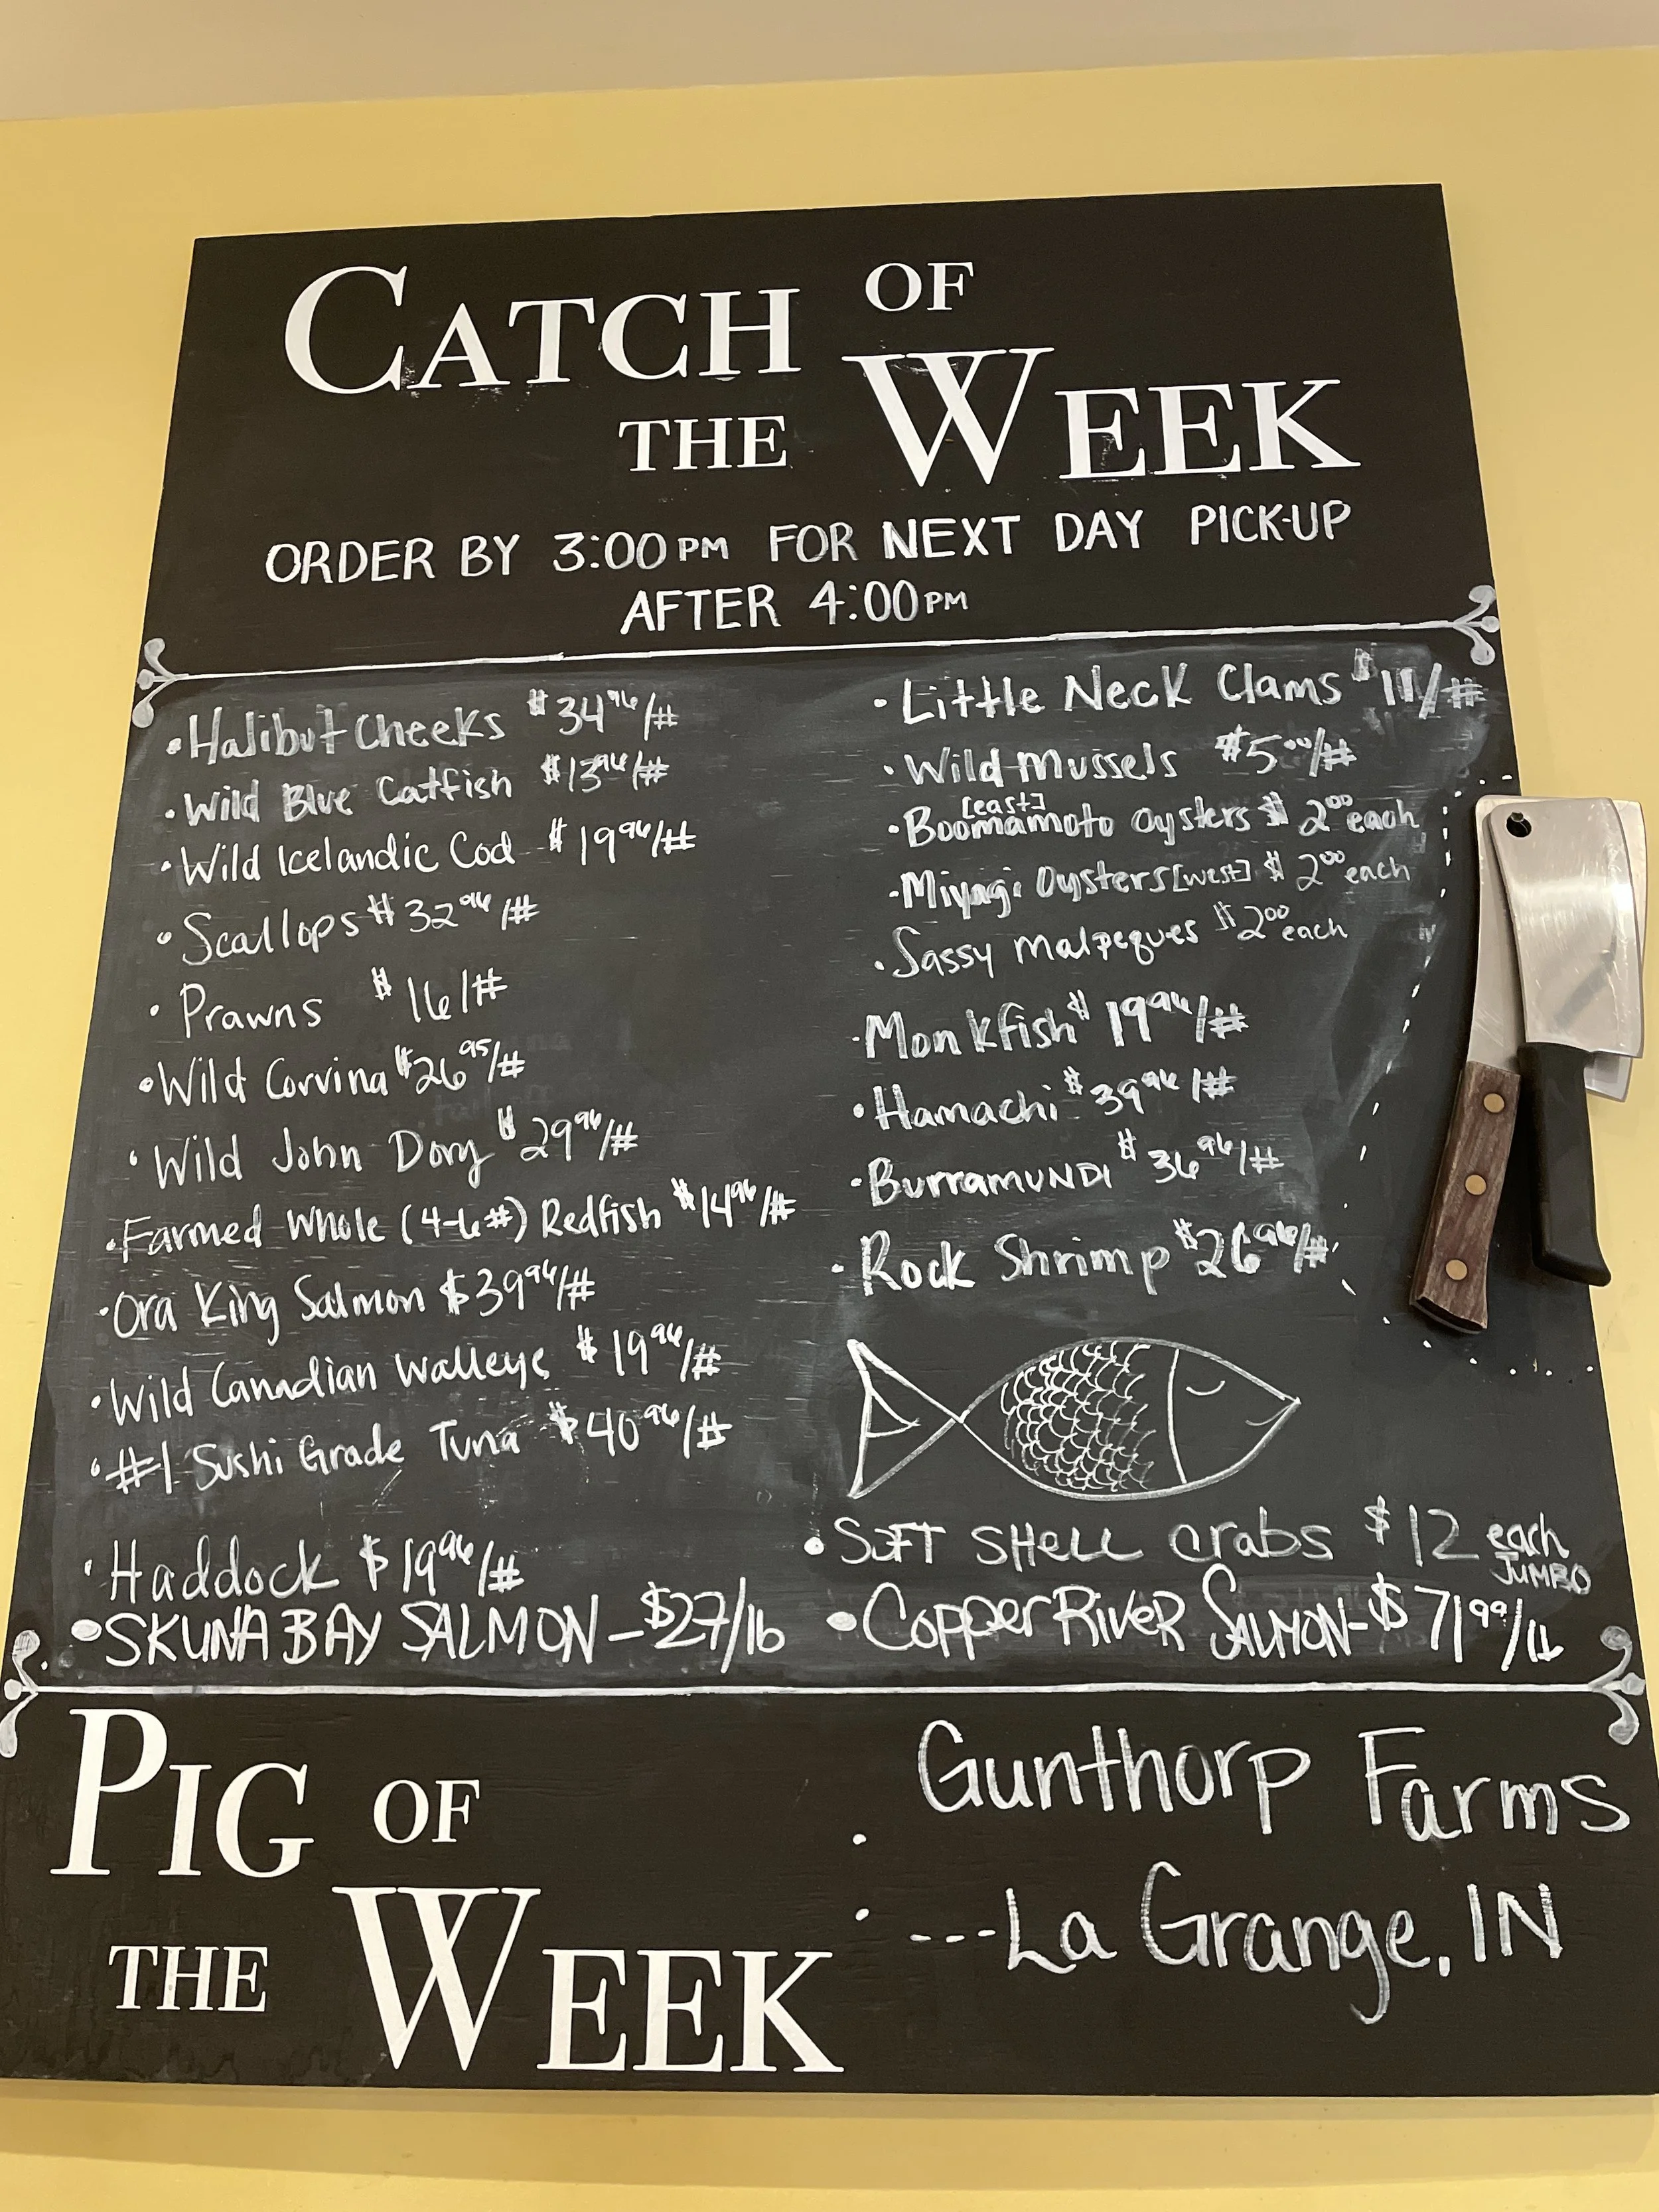 CATCH OF
THE WEEK
ORDER BY 3:00PM FOR NEXT DAY PICK-UP
AFTER 4:00PM
• Halibut Cheeks $34.96/#
• Wild Blue Catfish $13.96/#
• Wild Icelandic Cod $19.96/#
• Scallops $32.96/#
• Prawns $16/#
• Wild Corvina $26.95/#
• Wild John Dory $29.96/#
• Farmed Whole (4-6#) Redfish $14.96/#
• Ora King Salmon $39.96/#
• Wild Canadian Walleye $19.96/#
• #1 Sushi Grade Tuna $40.96/#
• Haddock $19.96/#
• SKUNA BAY SALMON – $27/lb
• Little Neck Clams
• Wild Mussels $5.00/#
[east]
• Boomamoto Oysters $2.00 each
• Miyagi Oysters [west] $2.00 each
• Sassy Malpeques $2.00 each
• Monkfish $19.96/#
• Hamachi $39.96/#
• BurramuNDI $36.96/#
• Rock Shrimp $26.96/#
• SOFT SHELL crabs $12 each
JUMBO
• COPPER RIVER SALMON – $71.99/lb
PIG OF
THE WEEK
Gunthorp Farms
---La Grange, IN